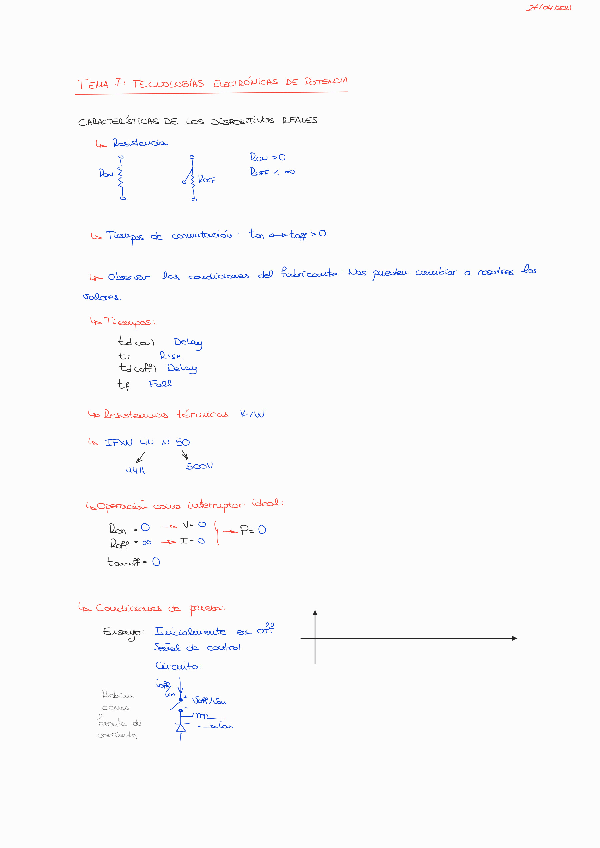 TEMA I: TECNOLOGÍAS ELECTRÓNICAS DE POTENCIA
CARACTERÍSTICAS DE LOS DISPOSITIVOS REALES
↳ Resistencia
Ron
Roff
Ron > 0
Roff < ∞
↳ Tiempos de conmutación: ton ↔ toff > 0
↳ Observar las condiciones del fabricante. Nos pueden cambiar a nosotros los
valores.
↳ Tiempos:
td(on) Delay
tr Rise
td(off) Delay
tf Fall
↳ Resistencias térmicas K/W
↳ IFXN 44 N 50
44A
500V
↳ Operación como interruptor ideal:
Ron = 0 → V = 0
Roff = ∞ → I = 0
→ P = 0
ton/off = 0
↳ Condiciones de prueba:
Ensayo: Inicialmente en off
Señal de control
Circuito
como
fuente de